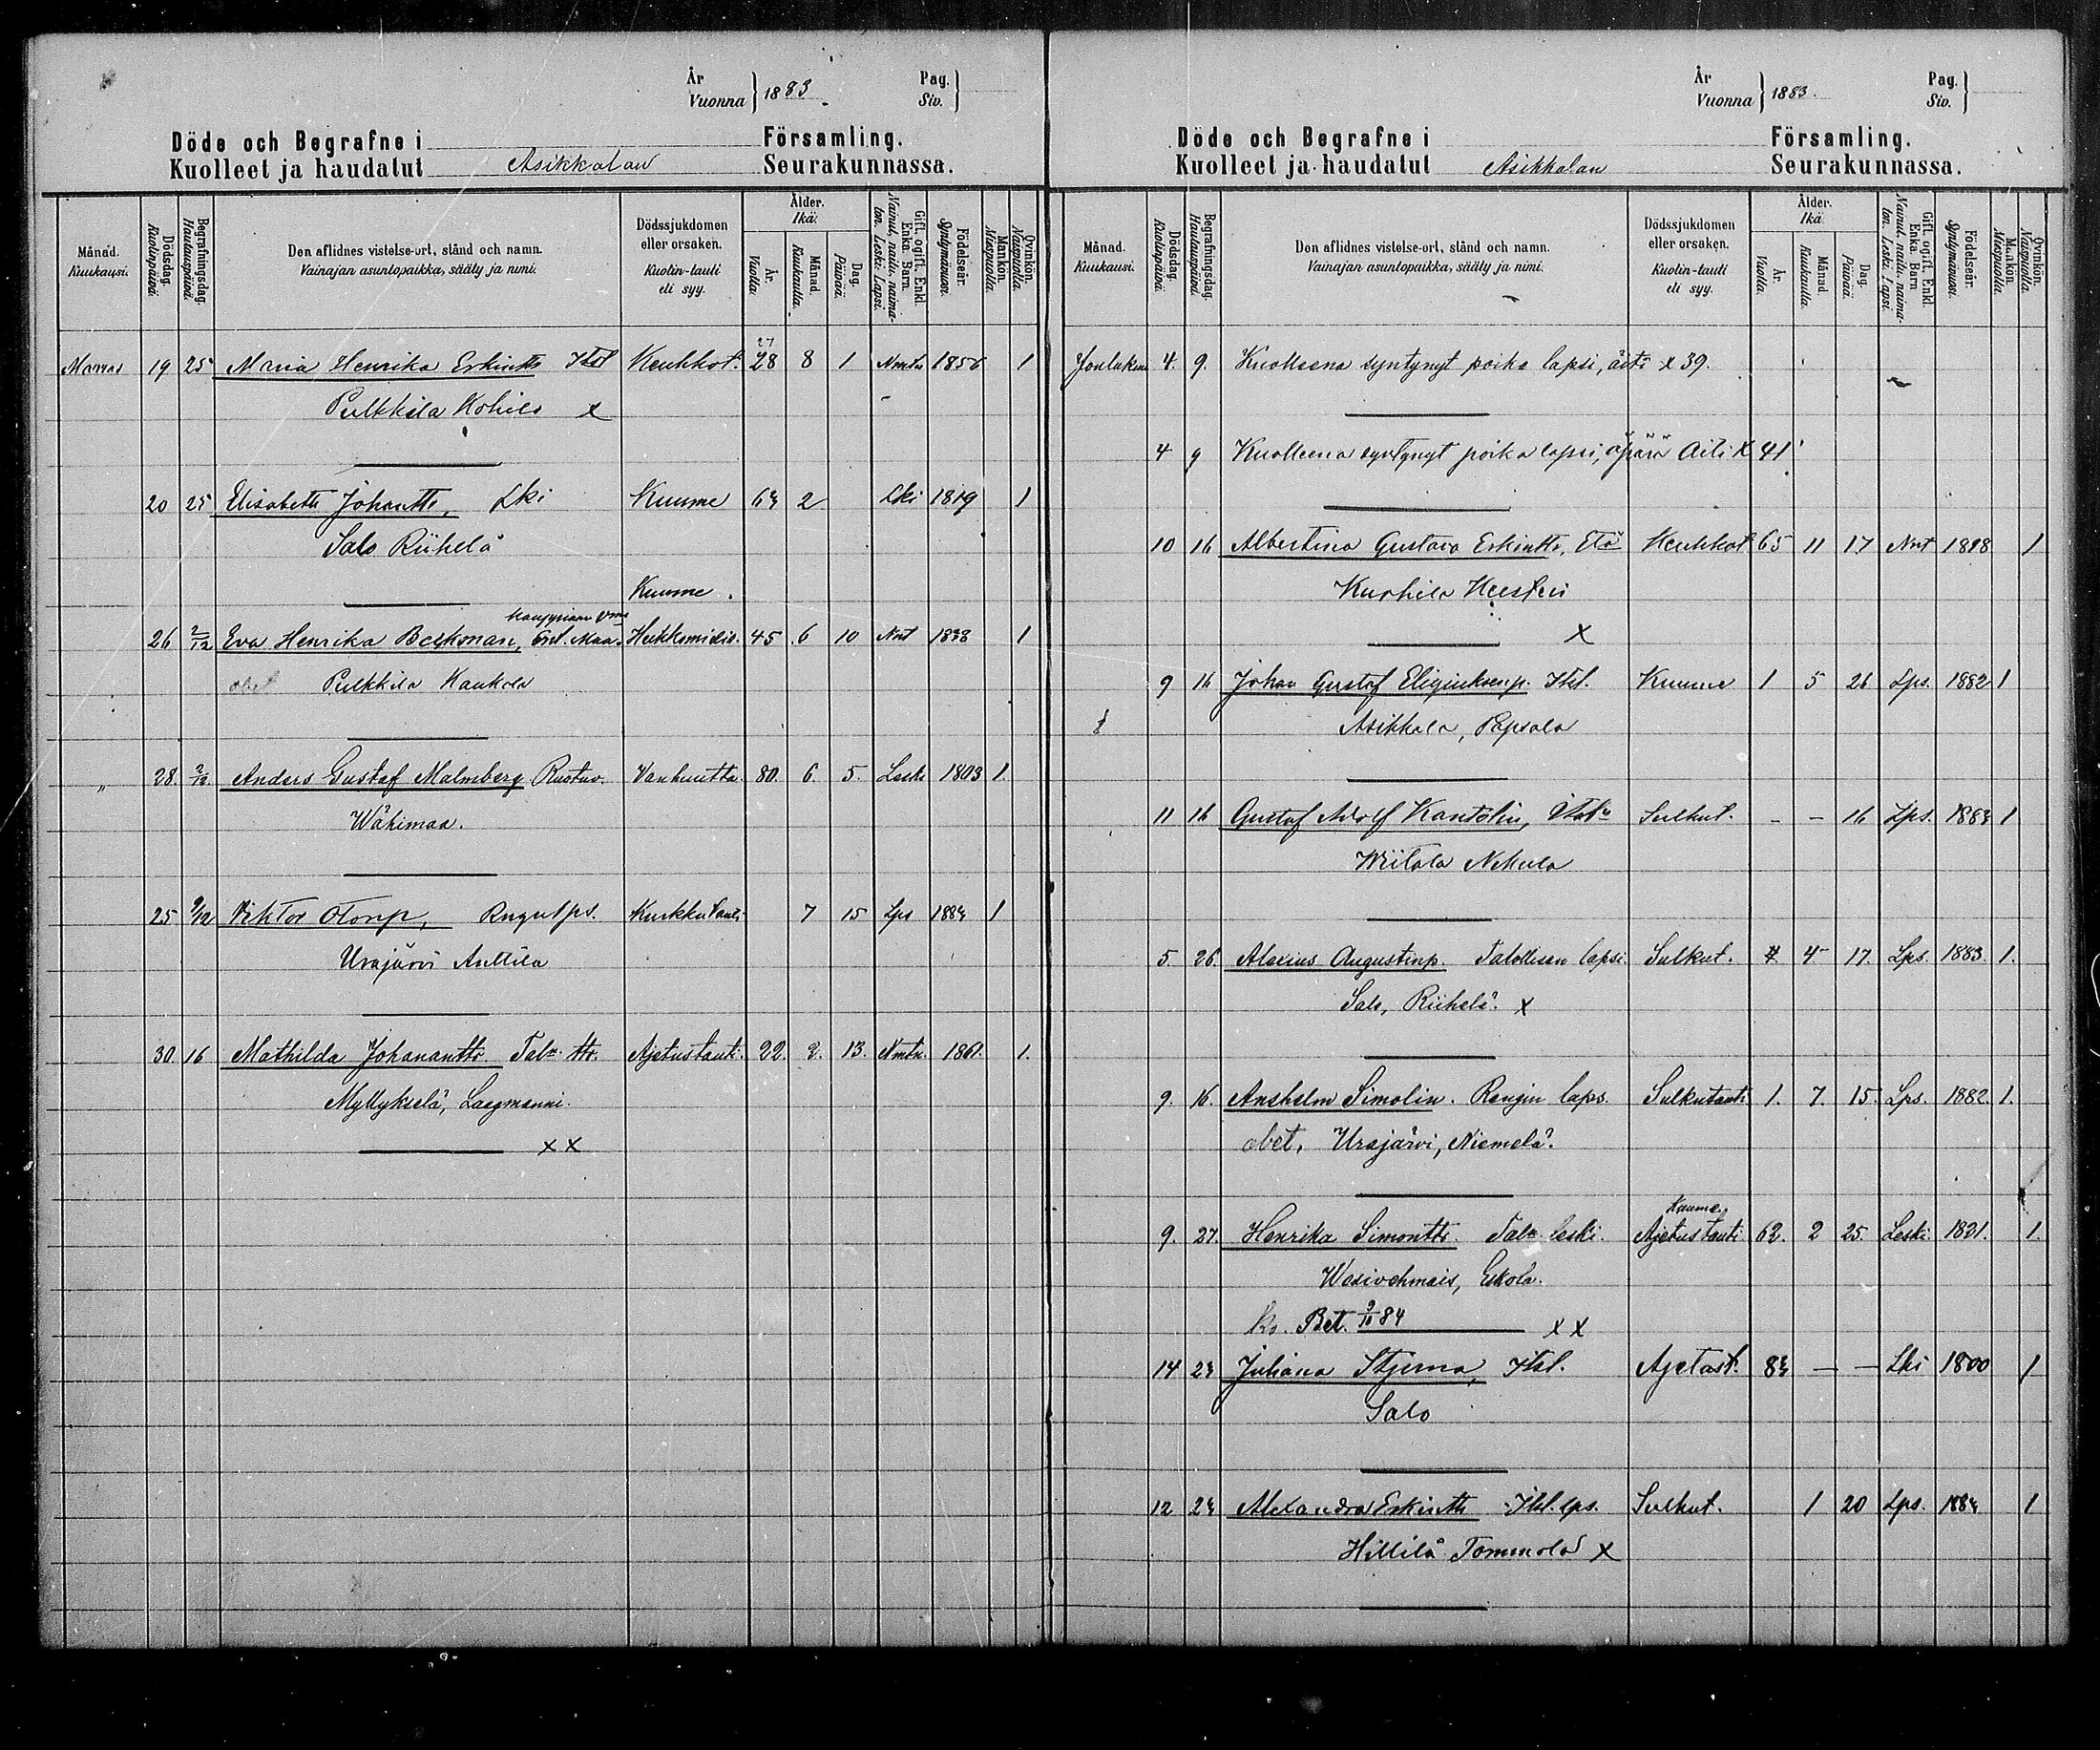 År
Vuonna } 1883.
Pag.
Siv. }
Döde och Begrafne i Församling.
Kuolleet ja haudatut Asikkalan Seurakunnassa.
Månad. Kuukausi.
Dödsdag. Kuolinpäivä.
Begrafningsdag. Hautauspäivä.
Den aflidnes vistelse-ort, stånd och namn.
Vainajan asuntopaikka, sääty ja nimi.
Dödssjukdomen eller orsaken.
Kuolin-tauti eli syy.
Ålder. Ikä.
År. Vuotta.
Månad. Kuukautta.
Dag. Päivää.
Gift, ogift. Enkl. Enka. Barn.
Nainut, naitu, naimaton. Leski. Lapsi.
Födelseår. Syntymävuosi.
Mankön. Miespuolia.
Qvinkön. Naispuolia.
27
Marras 19 25 Maria Henrika Erkintr Itsl Keuhkot. 28 8 1 Nmtn 1856 1
Pulkkila Kohila x
20 25 Elisabeth Johantr, Lki Kuume 64 2 Lki 1819 1
Salo Riihelä
Kuume.
26 2/12 Eva Henrika Beckman, Ent. Maa. 45 6 10 Nnt 1838 1
Pulkkila Kaukola
„ 28. 2/12 Anders Gustaf Malmberg Ruotuv. Vanhuutta. 80. 6. 5. Leski 1803 1.
Wähimaa.
25 9/12 Viktor Otonp, Rengin lps. Kurkkutauti 7 15 Lps 1883 1
Urajärvi Anttila
30. 16 Mathilda Johanantr. Taln ttr. Ajetustauti. 22. 2. 13. Nmtn. 1861. 1.
Myllykselä, Laagmanni.
x x
År
Vuonna } 1883.
Pag.
Siv. }
Döde och Begrafne i Församling.
Kuolleet ja haudatut Asikkalan Seurakunnassa.
Månad. Kuukausi.
Dödsdag. Kuolinpäivä.
Begrafningsdag. Hautauspäivä.
Den aflidnes vistelse-ort, stånd och namn.
Vainajan asuntopaikka, sääty ja nimi.
Dödssjukdomen eller orsaken.
Kuolin-tauti eli syy.
Ålder. Ikä.
År. Vuotta.
Månad. Kuukautta.
Dag. Päivää.
Gift, ogift. Enkl. Enka. Barn
Nainut, naitu, naimaton. Leski. Lapsi.
Födelseår. Syntymävuosi.
Mankön. Miespuolia.
Qvinkön. Naispuolia.
Joulukuu 4. 9. Kuolleena syntynyt poika lapsi, äiti x 39.
4 9 Kuolleena syntynyt poika lapsi, äpärä Äiti x 41
10 16 Albertina Gustava Erkintr, Keuhkot 65 11 17 Nnt 1818 1
Kurhila
x
9 16 Johan Gustaf Eliginksenp. Itsl. Kuume 1 5 26 Lps. 1882 1
Asikkala, Papsala
11 16 Gustaf Adolf Kantolin, Sulkut. - - 16 Lps. 1883 1
Wiitala Nikula
5. 26. Alexius Augustinp. Talollisen lapsi. Sulkut. 4 17. Lps. 1883. 1.
Salo, Riihelä. x
9. 16. Anshelm Simolin. Rengin laps. Sulkutauti 1. 7. 15. Lps. 1882. 1.
obet, Urajärvi, Niemelä.
Kuume
9. 27. Henrika Simontr. Taln leski. Ajetustauti 62. 2 25. Leski. 1821. 1.
Wesivehmais, Eskola.
Bet. 9/10 84 x x
14 23 Juliana Stjerna, Itsl. Ajetast. 83 — — Lki 1800 1
Salo
12 23 Alexandra Erkintr Itsl. lps. Sulkut. 1 20 Lps. 1883 1
Hillilä Tommola x